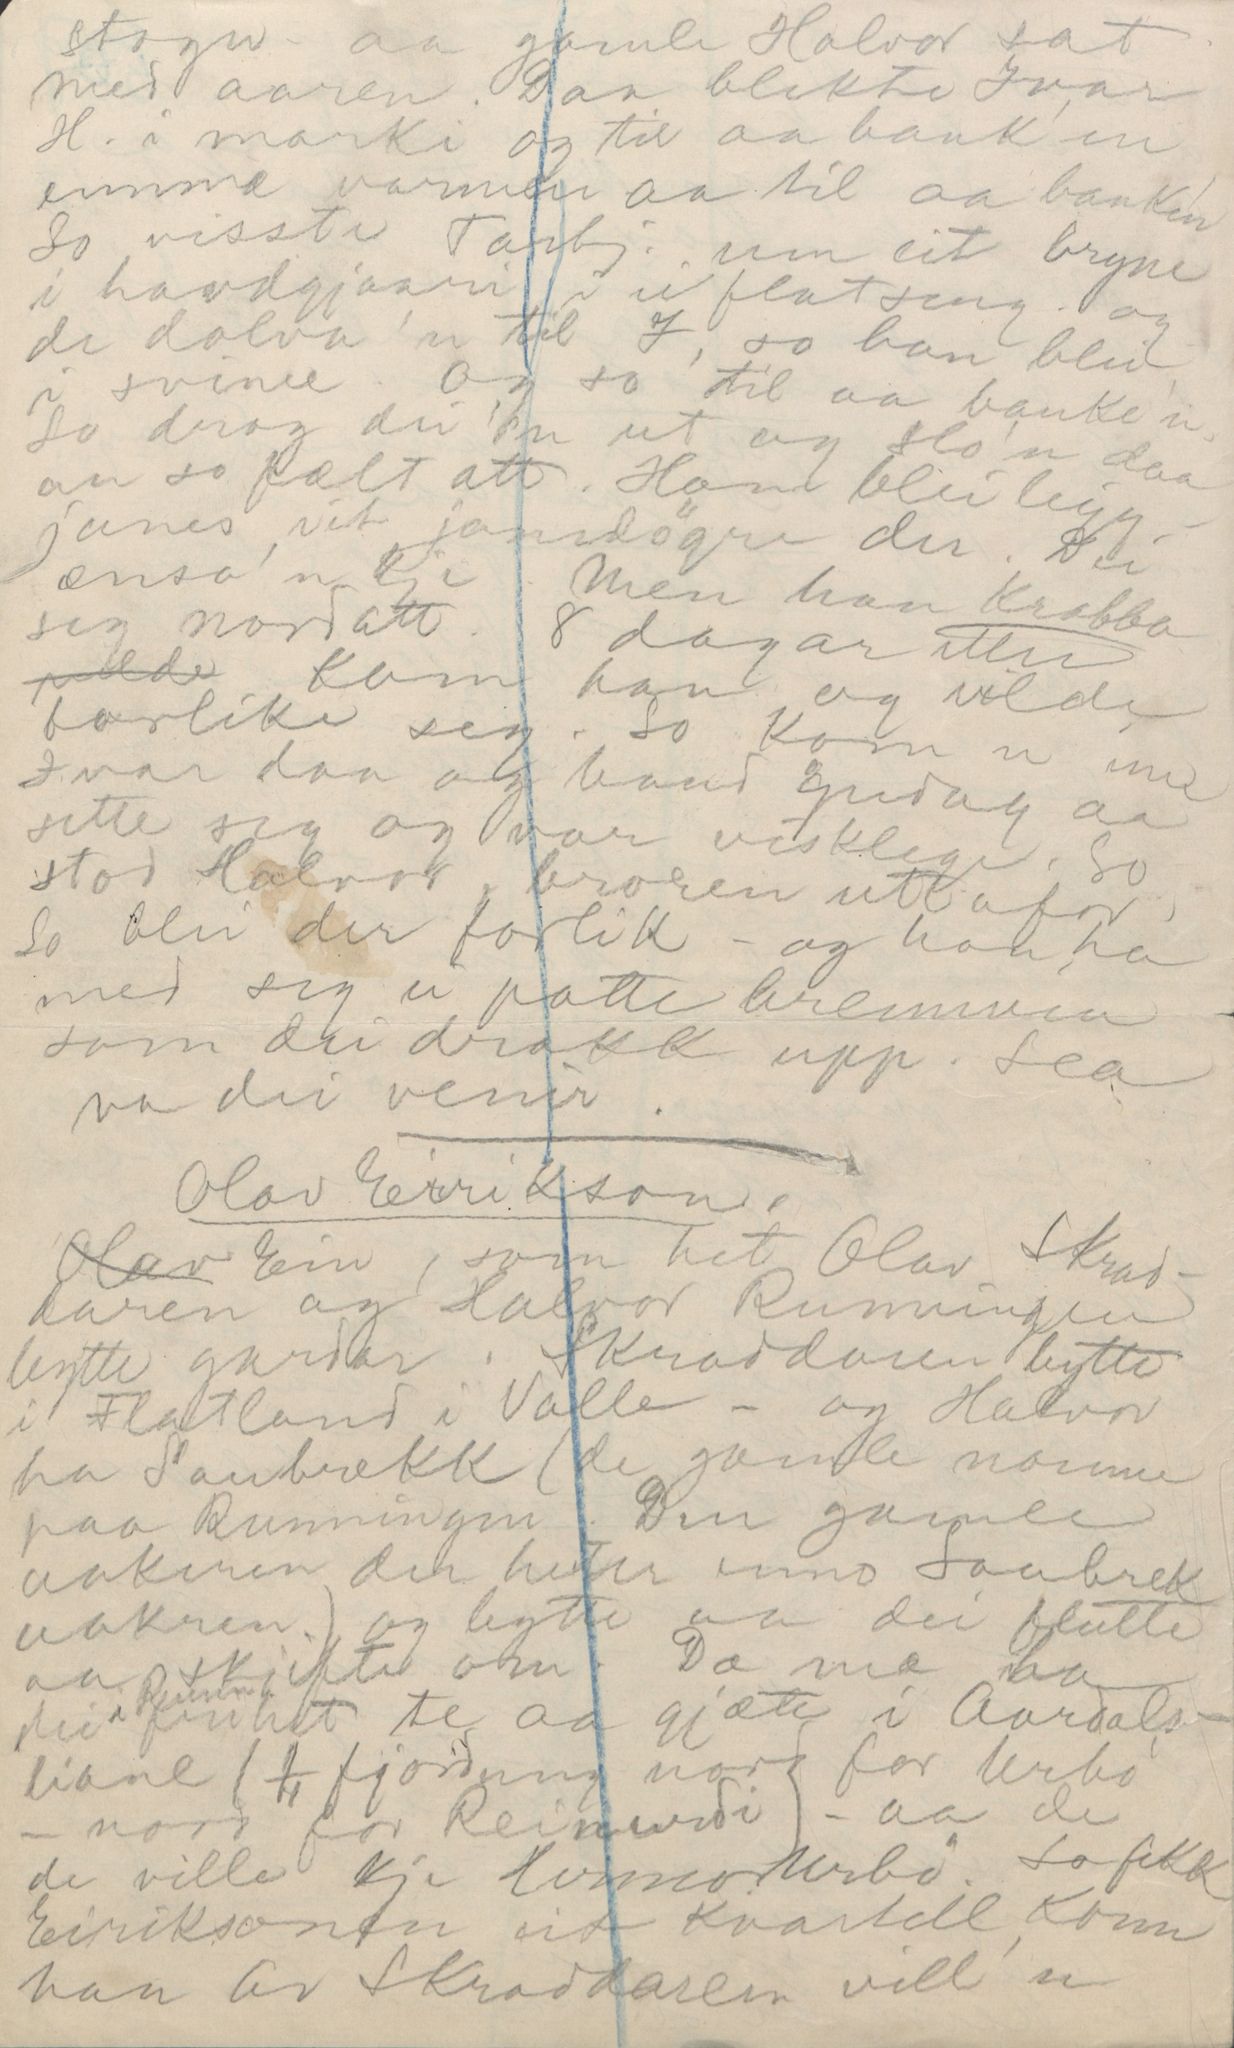 stogu - aa gamle Halvor sat
med aaren. Daa blekte Ivar
H. i marki og til aa bank'en
emme varmen aa til aa bank'en
So visste Tarbj. um eit bryne
i havdgjaari i ei flatseng. og
de dolva 'n til I, so han blei
i svime. Og so til aa banke 'n.
So drog dei 'n ut og slo 'n daa
an so fælt att. Han blei ligg-
janes eit jamdögre der. Dei
ænsa 'n kje. Men han Krabba
seg nordatt. 8 dagar etter
vilde kom han og vilde
forlike seg. So kom n inn
Ivar daa og baud Gudag aa
sette seg og var visklege. So
stod Halvor, broren uttafor,
So blei der forlik - og han ha
med seg ei potte brennvin
som dei drakk upp. Sea
va dei venir.
Olav Eirikson.
Olav Ein, som het Olav Skrad-
daren og Halvor Runningen
bytte gardar. Skraddaren bytte
i Flatland i Valle - og Halvor
ha Saubrekk (de gamle namne
paa Runningen. Den gamle
aakeren der heter enno Saubrekk
aakren.) og bytte aa dei flutte
aa skjifte om. Dæ me ha
dei i Runn. te aa gjæte i Aardals-
liane (1/4 fjordung nord for Urbö
- nord for Reinurdi) - aa de
de ville kje Urbö. So fekk
Eiriksonen eit kvartell, kom
han Ov Skraddaren vill 'n